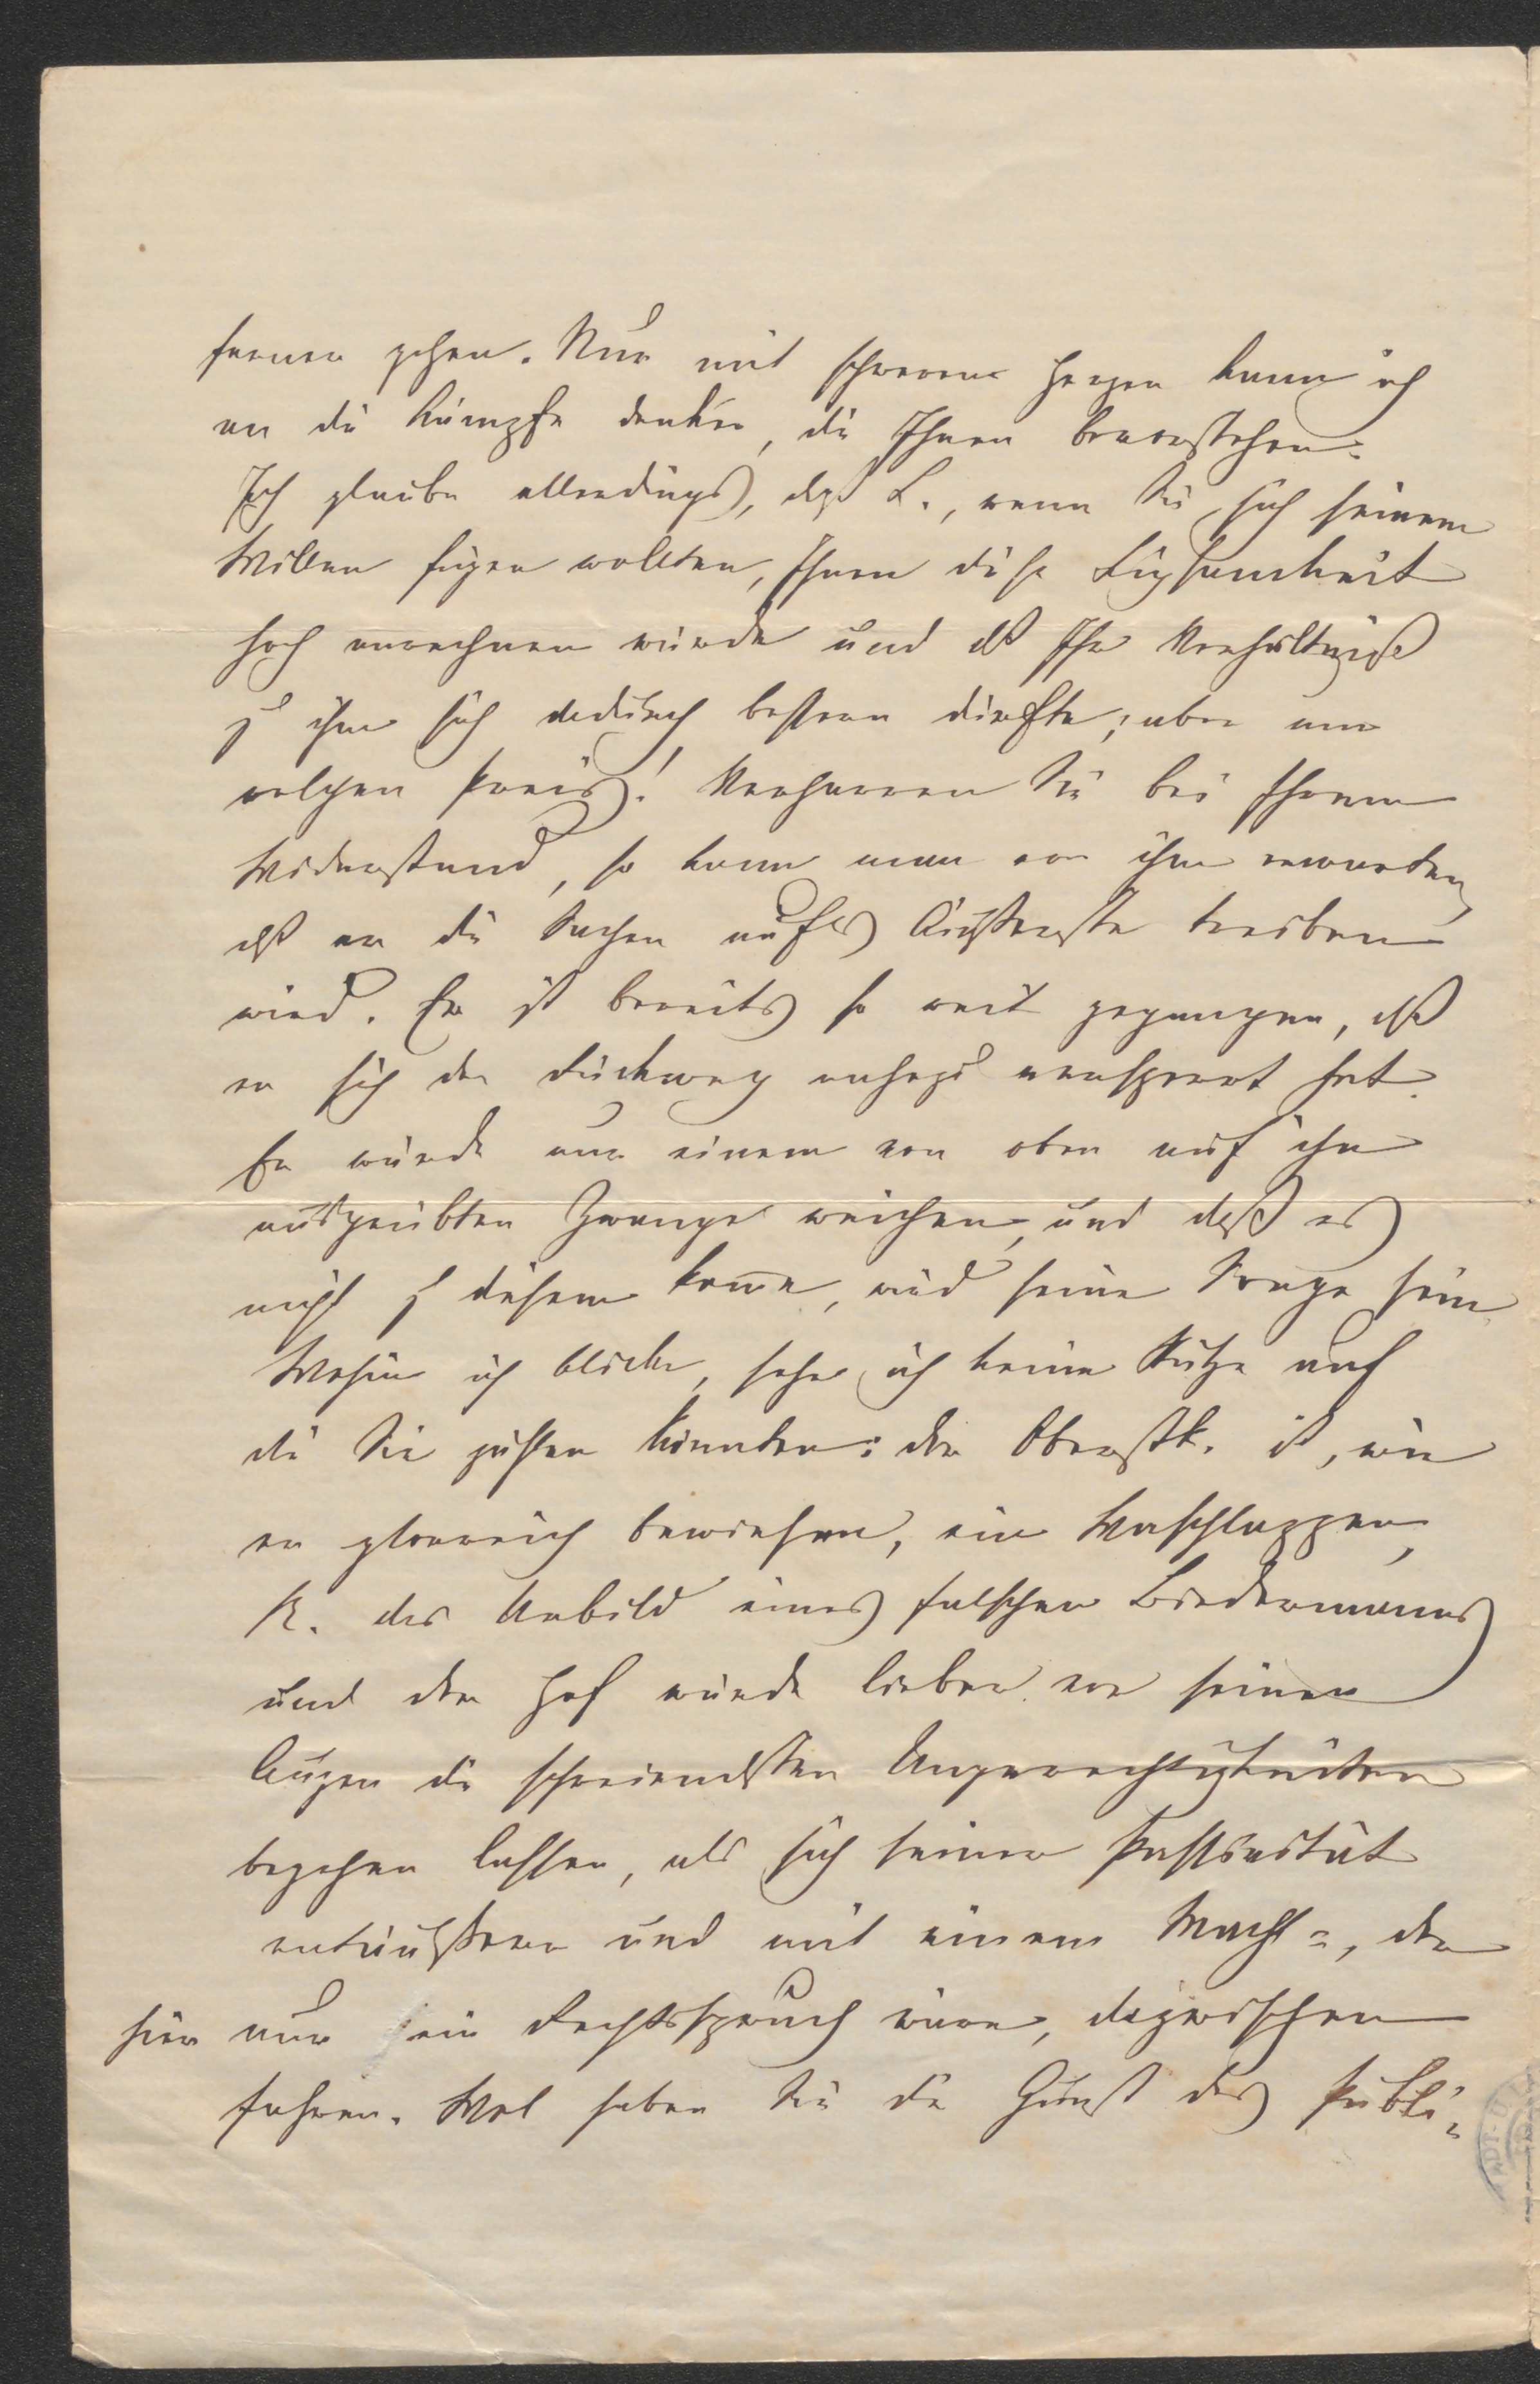 fernen gehen. Nur mit schweren Herzen kann ich
an die Kämpfe denken, die Ihnen bevorstehen.
Ich glaube allerdings, daß L., wenn Sie sich seinem
Willen fügen wollten, Ihnen diese Fügsamkeit
hoch anrechnen würde und daß Ihr Verhältniß
zu ihm sich dadurch bessern dürfte; aber um
welchen Preis! Verharren Sie bei Ihrem
Widerstand, so kann man von ihm erwarten,
daß er die Sachen aufs Äußerste treiben
wird. Er ist bereits so weit gegangen, daß
er sich den Rückweg nahezu versperrt hat.
Er würde nur einem von oben auf ihn
ausgeübten Zwange weichen, und daß es
nicht zu diesem kom̅e, wird seine Sorge sein.
Wohin ich blicke, sehe ich keine Stütze auf
die Sie zählen könnten: der Obersth. ist, wie
er glorreich bewiesen, ein Waschlappen,
K. das Urbild eines falschen Biedermanns
und der Hof würde lieber vor seinen
Augen die schreiendsten Ungerechtigkeiten
begehen lassen, als sich seiner Passivität
entäußern und mit einem Macht-, der
hier nur ein Rechtsspruch wäre, dazwischen
fahren. Wol haben Sie die Gunst des Publi-